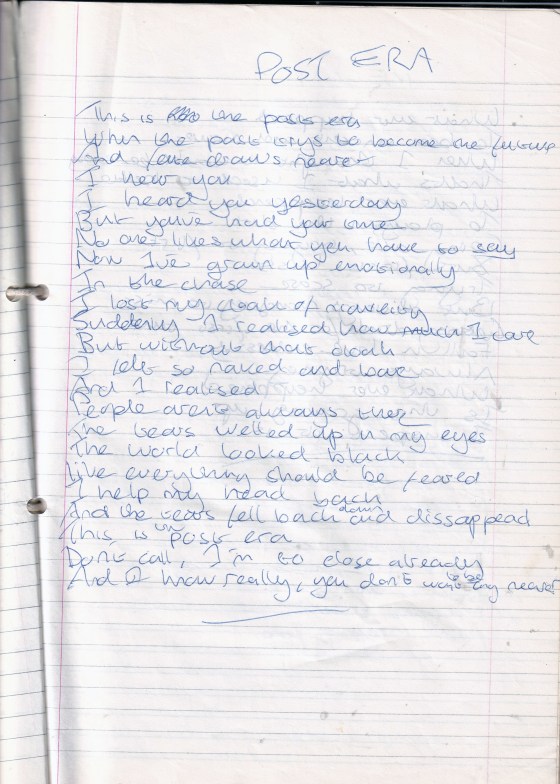 POST ERA
This is the posts era
When the past trys to become the future
And fate draws nearer
I hear you
I heard you yesterday
But you've had your time
No one likes what you have to say
Now I've grown up emotionally
In the chase
I lost my cloak of
Suddenly I realised how much I care
But without that cloak
I felt so naked and bare
And I realised
People arent always there
The tears welled up in my eyes
The world looked black
Like everything should be feared
I help my head back
And the tears fell back down and dissappead
This is the post era
Don't call, I'm to close already
And I know really, you don't want to be any nearer